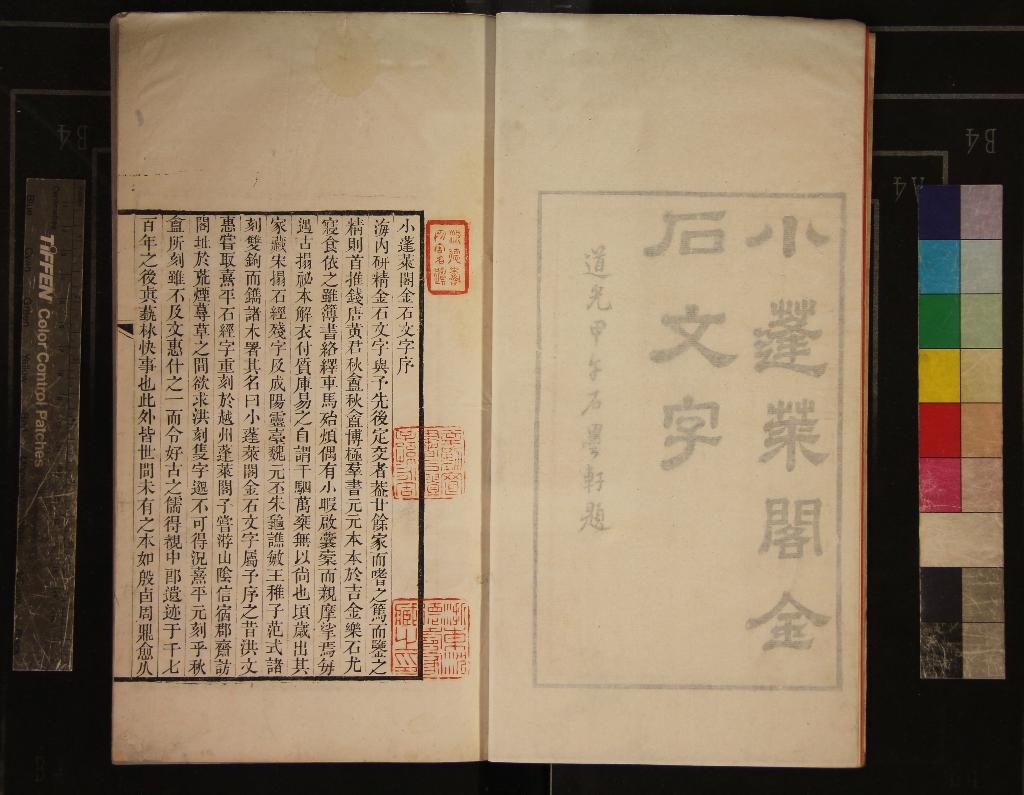 小蓬萊閣金
石文字
道光甲午石墨軒題
小蓬萊閣金石文字序
海內研精金石文字與予先後定交者葢廿餘家而嗜之篤而鑒之
精則首推錢唐黃君秋盦秋盦博極羣書元元本本於吉金樂石尤
寢食依之雖簿書絡繹車馬殆煩偶有小暇啟囊橐而親摩挲焉每
遇古搨祕本解衣付質庫易之自謂千駟萬棄無以尙也頃歲出其
家藏宋搨石經殘字及成陽靈臺魏元丕朱龜譙敏王稚子范式諸
刻雙鉤而鐫諸木署其名曰小蓬萊閣金石文字屬予序之昔洪文
惠嘗取熹平石經字重刻於越州蓬萊閣予嘗游山陰信宿郡齋訪
閣址於荒煙蔓草之間欲求洪刻隻字邈不可得況熹平元刻乎秋
盦所刻雖不及文惠什之一而令好古之儒得覩中郎遺迹于千七
百年之後眞蓺林快事也此外皆世間未有之本如殷卣周鼎愈久
TIFFEN Color Control Patches
B4
B4
A4